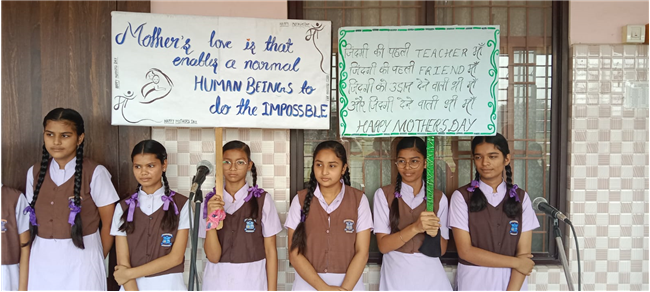 Mother's love is that
enables a normal
HUMAN BEINGS to
do the IMPOSSBLE
माँ
माँ
HAPPY MOTHERS DAY
ज़िंदगी की पहली TEACHER माँ
ज़िंदगी की पहली FRIEND माँ
ज़िंदगी की
देने वाली भी माँ
और ज़िंदगी देने वाली भी माँ
HAPPY MOTHERS DAY